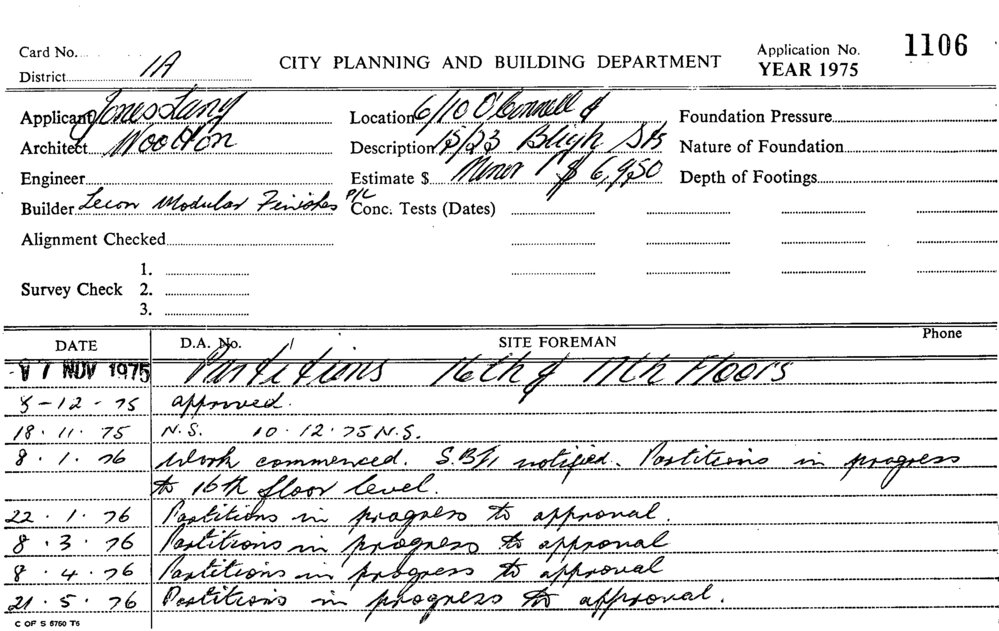 Card No.
CITY PLANNING AND BUILDING DEPARTMENT
Application No. 1106
District 1A
YEAR 1975
Applicant Jones Lang
Location 6/10 O'Connell &
Foundation Pressure
Architect Wootton
Description 15/23 Bligh Sts
Nature of Foundation
Engineer
Estimate $ Minor $ 6,950
Depth of Footings
Builder Lecon Modular Finishes P/L
Conc. Tests (Dates)
Alignment Checked
1.
Survey Check 2.
3.
DATE D.A. No. SITE FOREMAN Phone
NOV 1975 Partitions 16th & 17th Floors
5-12-75 approved.
18.11.75 N.S. 10.12.75 N.S.
8.1.76 Work commenced. notified. Partitions in progress
to 16th floor level.
22.1.76 Partitions in progress to approval.
8.3.76 Partitions in progress to approval
8.4.76 Partitions in progress to approval
21.5.76 Partitions in progress to approval.
C OF S 5750 T6